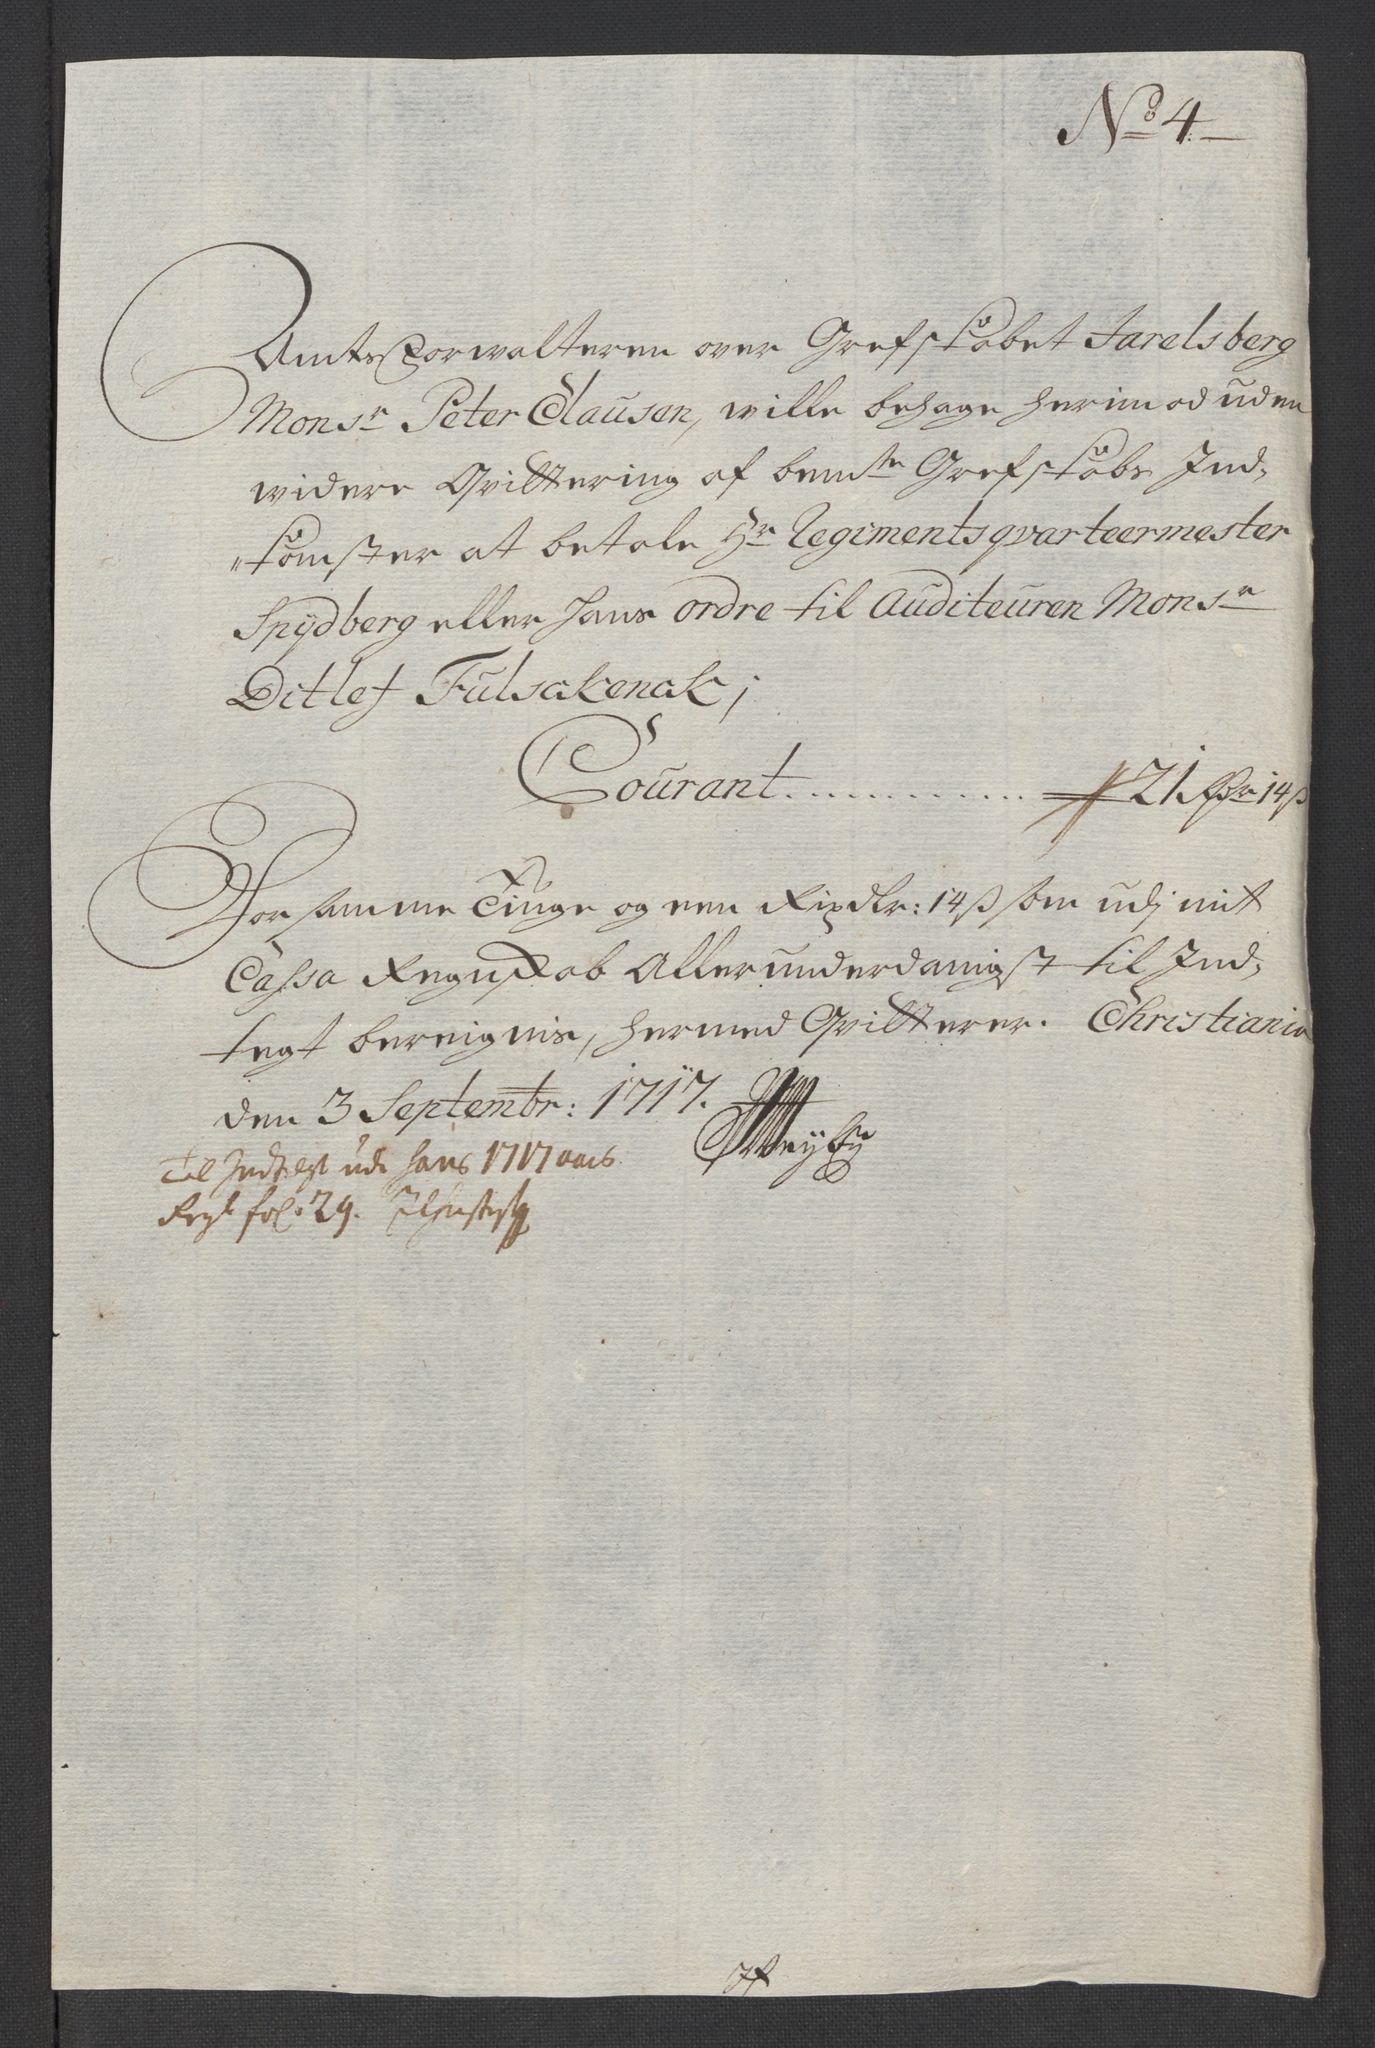 No 4
Amts Forwalteren over Grefskabet Jarelsberg
Monsr Peter Clausen, wille behage herimod uden
widere Qvittering af bemte Grefskabs Ind-
"komster at betale Hr Regimentsqvarteermester
Spydberg eller hans ordre til Auditeuren Monsr
Ditlef
Courant 21 Rdr 14 ß
For samme Tiuge og een Rixdlr: 14 ß som udj mit
Cassa Regnskab Allerunderdanigst til Ind-
tegt bereignis, hermed Qvitterer. Christiania
den 3 Septembr: 1717.
Til Indtegt udi hans 1717 aars
Regk fol: 29.